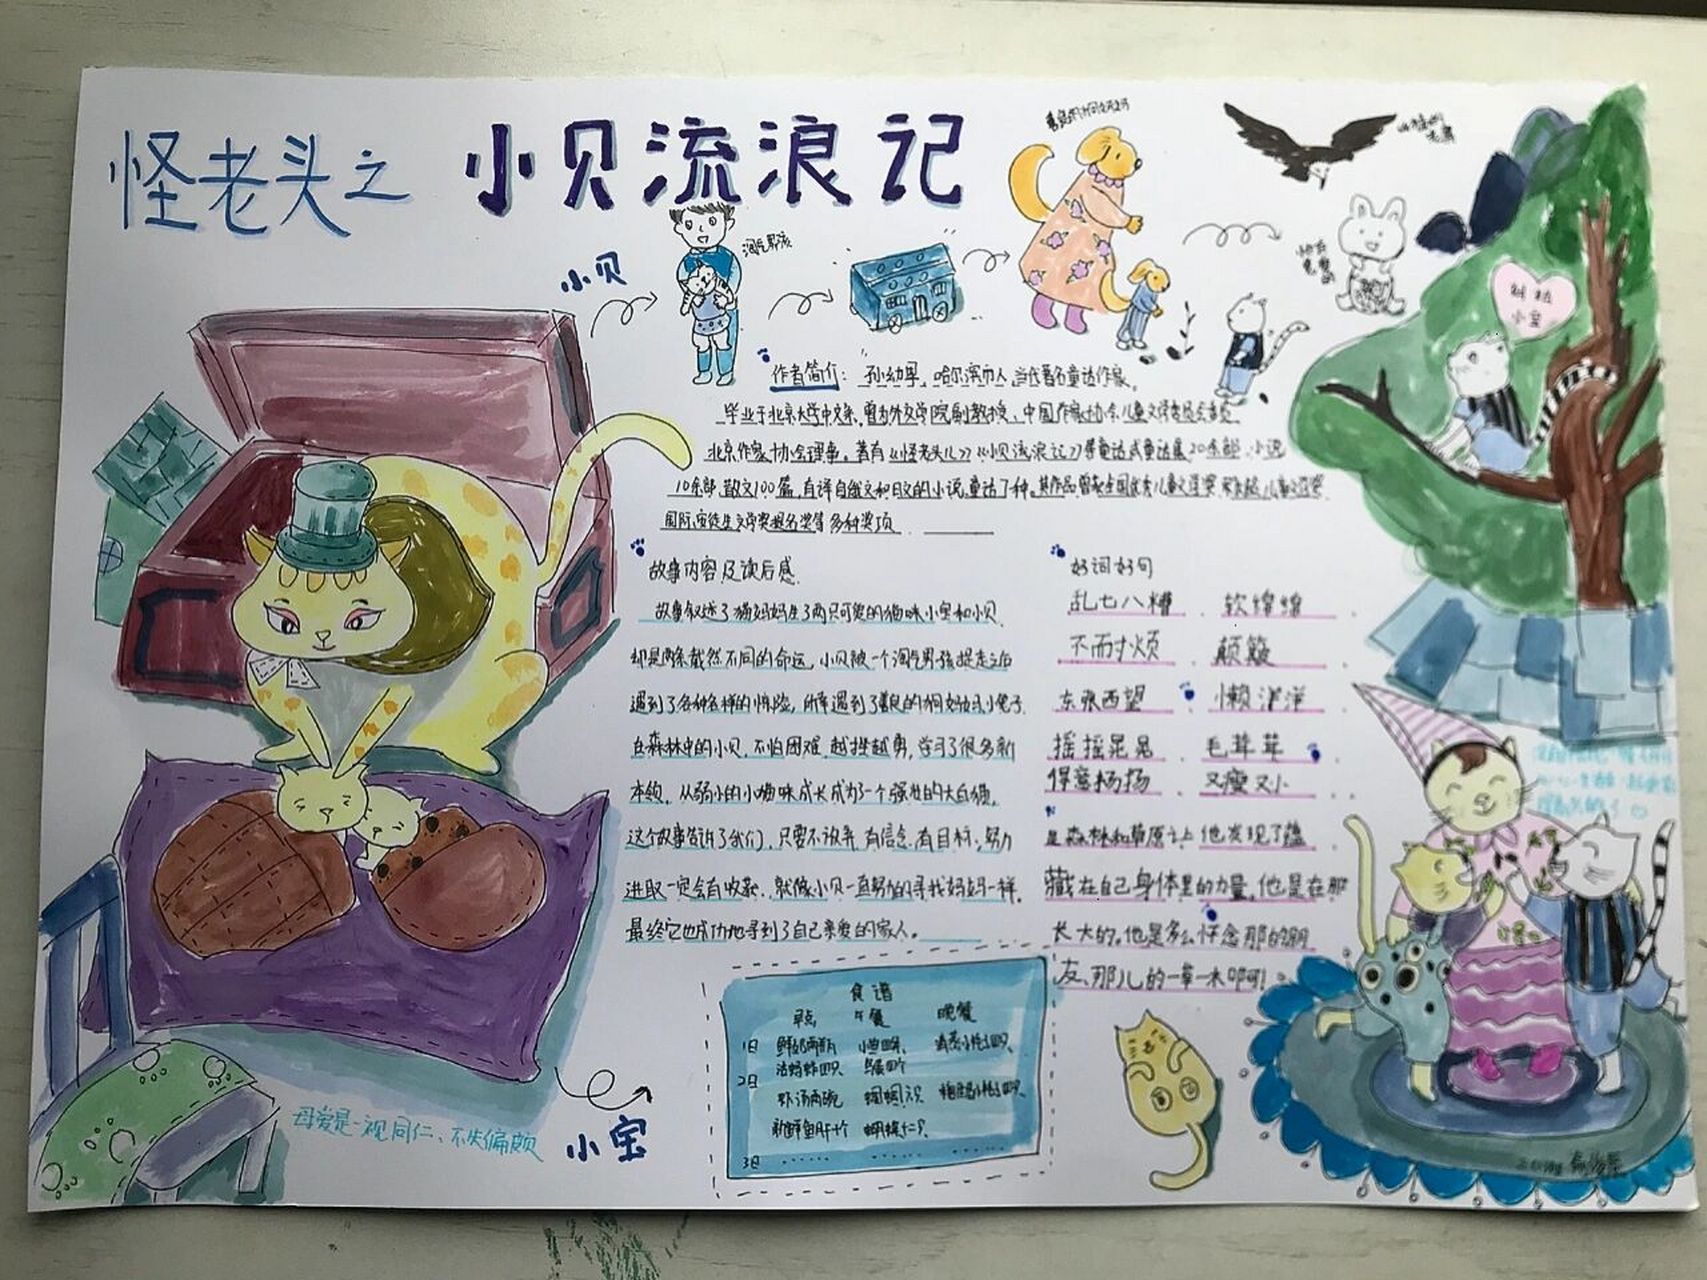 怪老头之 小贝流浪记
小贝
淘气男孩
作者简介： 孙幼军，哈尔滨市人，当代著名童话作家。
毕业于北京大学中文系，曾为外交学院副教授、中国作家协会儿童文学委员会委员
北京作家协会理事。著有《怪老头儿》《小贝流浪记》等童话或童话集20余部，小说
10余部，散文100篇，自译自俄文和日文的小说，童话7种。其作品曾获全国优秀儿童文学奖
国际安徒生文学奖提名奖等多种奖项
故事内容及读后感
故事叙述了猫妈妈生了两只可爱的猫咪小宝和小贝
却是两条截然不同的命运，小贝被一个淘气男孩捉走之后
遇到了各种各样的惊险，所幸遇到了善良的狗妈妈和小兔子
在森林中的小贝，不怕困难 越挫越勇，学习了很多新
本领，从弱小的小猫咪成长成为了一个强壮的大白猫。
这个故事告诉了我们，只要不放弃，有信念，有目标，努力
进取一定会有收获，就像小贝一直努力的寻找妈妈一样。
最终它也成功地寻到了自己亲爱的家人。
好词好句
乱七八糟 、 软绵绵
不耐烦 、 颠簸
东张西望 懒洋洋
摇摇晃晃 、 毛茸茸
得意杨扬 又瘦又小
是森林和草原让他发现了蕴
藏在自己身体里的力量，他是在那
长大的，他是多么怀念那的朋
友，那儿的一草一木啊！
食谱
早点 午餐 晚餐
1日
2日
3日 ...... ...... ......
母爱是一视同仁、不失偏颇
小宝